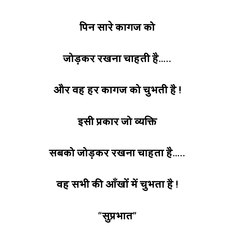 पिन सारे कागज को
जोड़कर रखना चाहती है.....
और वह हर कागज को चुभती है !
इसी प्रकार जो व्यक्ति
सबको जोड़कर रखना चाहता है.....
वह सभी की आँखों में चुभता है !
"सुप्रभात"